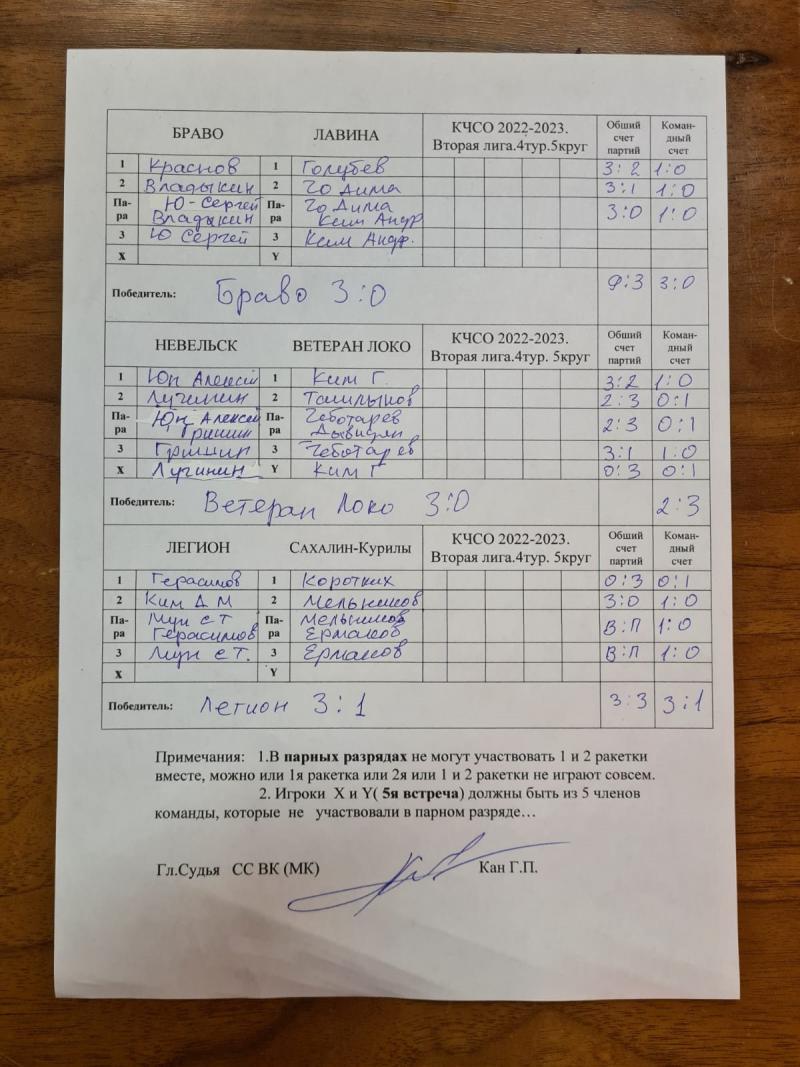 БРАВО ЛАВИНА КЧСО 2022-2023. Вторая лига.4тур.5круг Общий счет партий Коман-дный счет
1 Краснов 1 Голубев 3:2 1:0
2 Владыкин 2 Чо Дима 3:1 1:0
Па-ра Ю-Сергей Владыкин Па-ра Чо Дима Ким Андр 3:0 1:0
3 Ю Сергей 3 Ким Андр.
X Y
Победитель: Браво 3:0 9:3 3:0
НЕВЕЛЬСК ВЕТЕРАН ЛОКО КЧСО 2022-2023. Вторая лига.4тур. 5круг Общий счет партий Коман-дный счет
1 Юн Алексей 1 Ким Г. 3:2 1:0
2 Лугинин 2 2:3 0:1
Па-ра Юн Алексей Гришин Па-ра Чеботарев 2:3 0:1
3 Гришин 3 Чеботарев 3:1 1:0
X Лугинин Y Ким Г 0:3 0:1
Победитель: Ветеран Локо 3:0 2:3
ЛЕГИОН САХАЛИН-Курилы КЧСО 2022-2023. Вторая лига.4тур. 5круг Общий счет партий Коман-дный счет
1 Герасимов 1 Коротких 0:3 0:1
2 Ким Д М 2 Мельников 3:0 1:0
Па-ра Мун С Т Герасимов Па-ра Мельников Ермаков В:П 1:0
3 Мун С Т. 3 Ермаков В:П 1:0
X Y
Победитель: Легион 3:1 3:3 3:1
Примечания: 1.В парных разрядах не могут участвовать 1 и 2 ракетки
вместе, можно или 1я ракетка или 2я или 1 и 2 ракетки не играют совсем.
2. Игроки X и Y( 5я встреча) должны быть из 5 членов
команды, которые не участвовали в парном разряде…
Гл.Судья СС ВК (МК) Кан Г.П.